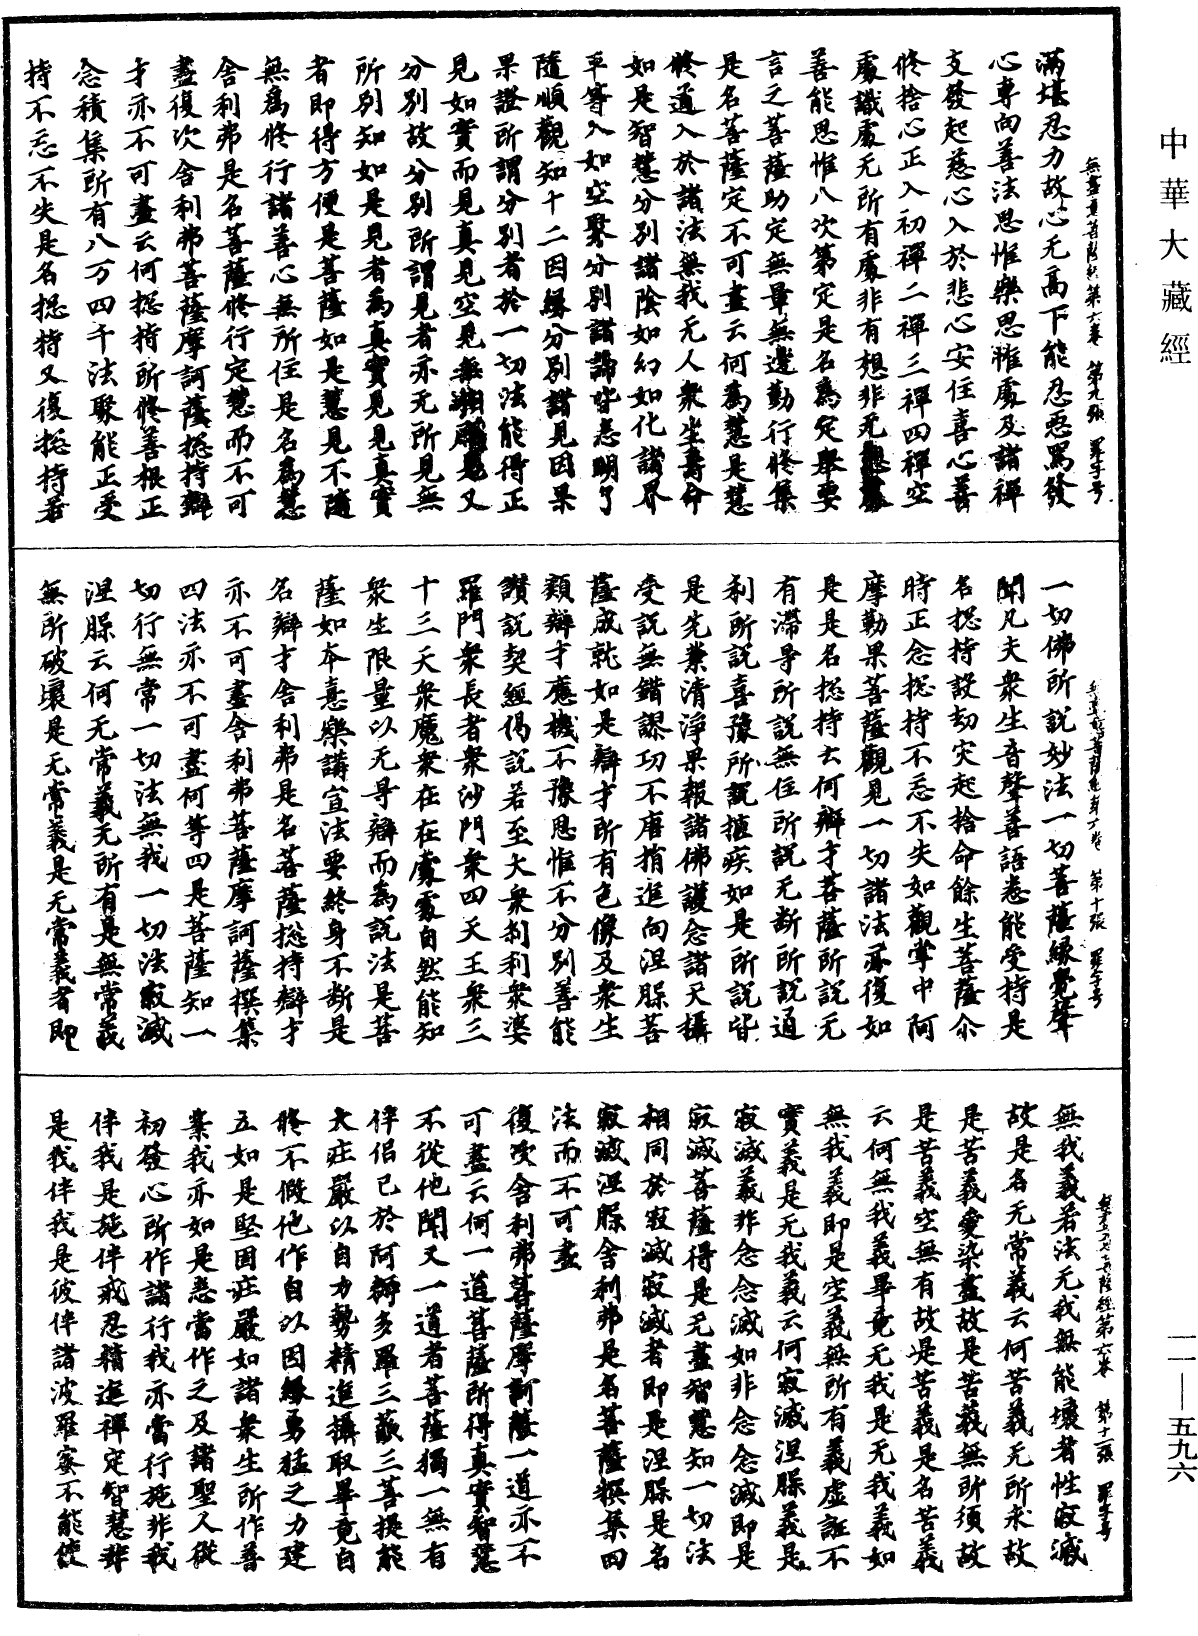 中華大藏經
無盡意菩薩經第六卷 第九張 羅字号
滿堪忍力故心无高下能忍惡罵發
心專向善法思惟樂思惟處及諸禪
支發起慈心入於悲心安住喜心善
修捨心正入初禪二禪三禪四禪空
處識處无所有處非有想非无想處
善能思惟八次第定是名為定舉要
言之菩薩助定無量無邊勤行修集
是名菩薩定不可盡云何為慧是慧
修道入於諸法無我无人衆生壽命
如是智慧分別諸陰如幻如化諸界
平等入如空聚分別諸諦皆悉明了
隨順觀知十二因縁分別諸見因果
果證所謂分別者於一切法能得正
見如實而見真見空見無相願見又
分別故分別所謂見者亦无所見無
所別知如是見者為真實見見真實
者即得方便是菩薩如是慧見不隨
無為修行諸善心無所住是名為慧
舍利弗是名菩薩修行定慧而不可
盡復次舍利弗菩薩摩訶薩揔持辯
才亦不可盡云何揔持所修善根正
念積集所有八万四千法聚能正受
持不忘不失是名揔持又復揔持若
第十張 羅字号
一切佛所說妙法一切菩薩縁覺聲
聞凡夫衆生音聲善語悉能受持是
名揔持設劫灾起捨命餘生菩薩尒
時正念揔持不忘不失如觀掌中阿
摩勒果菩薩觀見一切諸法亦復如
是是名揔持云何辯才菩薩所說无
有滯导所說無住所說无断所說通
利所說喜豫所說捷疾如是所說皆
是先業清淨果報諸佛護念諸天攝
受說無錯謬功不唐捐進向涅槃菩
薩成就如是辯才所有色像及衆生
類辯才應機不豫思惟不分別善能
讃說契經偈說若至大衆刹利衆婆
羅門衆長者衆沙門衆四天王衆三
十三天衆魔衆在在處處自然能知
衆生限量以无导辯而為說法是菩
薩如本意樂講宣法要終身不斷是
名辯才舍利弗是名菩薩揔持辯才
亦不可盡舍利弗菩薩摩訶薩撰集
四法亦不可盡何等四是菩薩知一
切行無常一切法無我一切法寂滅
涅槃云何无常義无所有是無常義
無所破壞是无常義是无常義者即
第六卷 第十一張 羅字号
無我義若法无我無能壞者性寂滅
故是名无常義云何苦義无所求故
是苦義愛染盡故是苦義無所須故
是苦義空無有故是苦義是名苦義
云何無我義畢竟无我是无我義如
無我義即是空義無所有義虛誑不
實義是无我義云何寂滅涅槃義是
寂滅義非念念滅如非念念滅即是
寂滅菩薩得是无盡智慧知一切法
相同於寂滅寂滅者即是涅槃是名
寂滅涅槃舍利弗是名菩薩撰集四
法而不可盡
復次舍利弗菩薩摩訶薩一道亦不
可盡云何一道菩薩所得真實智慧
不從他聞又一道者菩薩獨一無有
伴侶已於阿耨多羅三藐三菩提能
大莊嚴以自力勢精進攝取畢竟自
修不假他作自以因縁勇猛之力建
立如是堅固莊嚴如諸衆生所作善
業我亦如是悉當作之及諸聖人從
初發心所作諸行我亦當行施非我
伴我是施伴戒忍精進禪定智慧非
是我伴我是彼伴諸波羅蜜不能使
一一—五九六